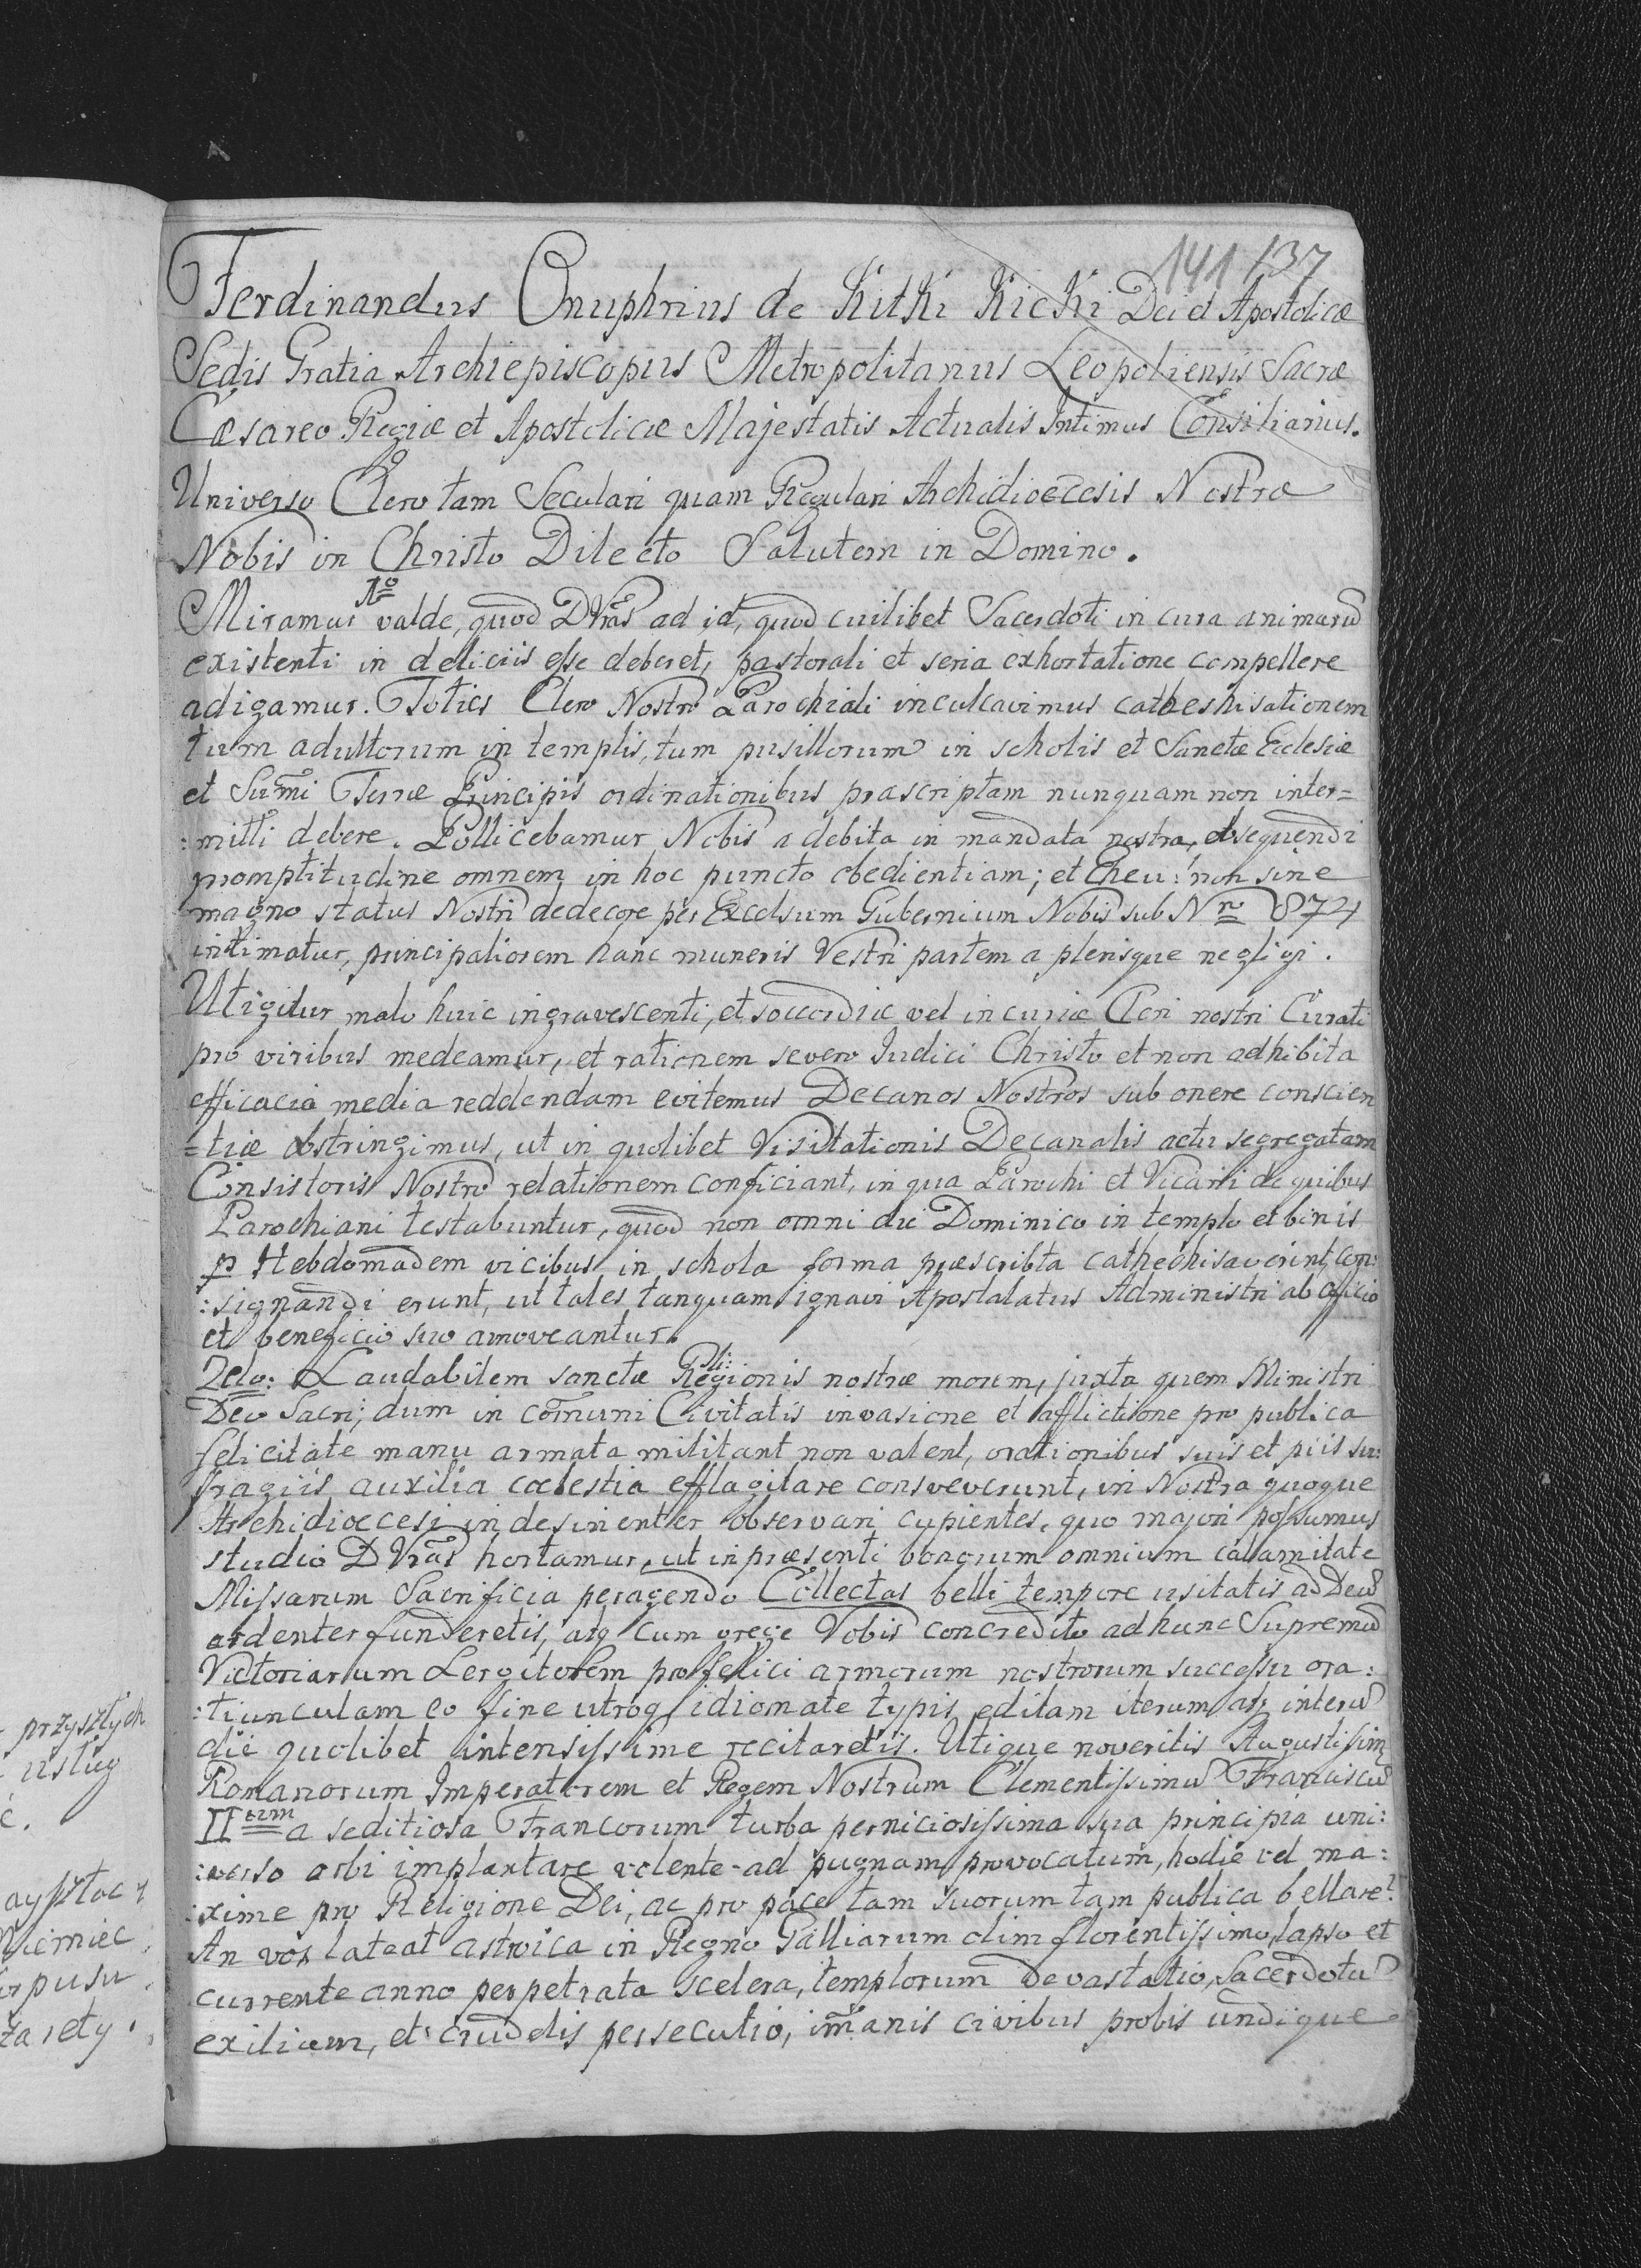 141 137
Ferdinandus Onuphrius de Kitki Kicki Dei et Apostolicæ
Sedis Gratia Archiepiscopus Metropolitanus Leopoliensis Sacræ
Cæsareo Regiæ et Apostolicæ Majestatis Actualis Intimus Consiliarius.
Universo Clero tam Seculari quam Regulari Archidioecesis Nostræ
Nobis in Christo Dilecto Salutem in Domino.
1º
Miramur valde, quod DVrās ad id, quod cuilibet Sacerdoti in cura animarū
existenti in deliciis esse deberet, pastorali et seria exhortatione compellere
adigamur. Toties Clero Nostro Parochiali inculcavimus catheshisationem
tum adultorum in templis, tum pusillorum in scholis et Sanctæ Eclesiæ
et Sum̄i Terræ Principis ordinationibus præscriptam nunquam non inter=
:mitti debere. Pollicebamur Nobis a debita in mandata nostra, obsequendi
promptitudine omnem in hoc puncto obedientiam; et Eheu! non sine
magno status Nostri dedecore per Excelsum Gubernium Nobis sub Nro 874
intimatur, principaliorem hanc muneris Vestri partem a plerisque negligi.
Ut igitur malo huic ingravescenti, et soccordiæ vel incuriæ Cleri nostri Curati
pro viribus medeamur, et rationem severo Iudici Christo et non adhibita
efficacia media reddendam evitemus Decanos Nostros sub onere conscien
=tiæ obstringimus, ut in quolibet Visitationis Decanalis actu segregatam
Consistoris Nostro relationem conficiant, in qua Parochi et Vicarii de quibus
Parochiani testabuntur, quod non omni die Dominico in templo et binis
p Hebdomadem vicibus in schola forma præscribta cathechisaverint, con:
:signandi erunt, ut tales tanquam ignavi Apostalatus Administri ab officio
et beneficio suo amoveantur.
2do: Laudabilem sanctæ Regionis nostræ morem, juxta quem Ministri
li:
Deo Sacri, dum in com̄uni Civitatis invasione et afflictione pro publica
felicitate manu armata militant non valent, orationibus suis et piis su:
fragiis auxilia coelestia efflagitare consveverunt, in Nostra quoque
Archidioecesi indesinenter observari cupientes, quo majori possumus
studio DVrās hortamur, ut in præsenti bonorum omnium calamitate
Missarum Sacrificia peragendo Collectas belli tempore usitatis ad Deū
ardenter funderetis, atq cum grege Vobis concredito ad hunc Supremū
Victoriarum Lergitorem pro felici armorum nostrorum successu ora:
:tiunculam eo fine utroq idiomate typis editam iterum atq iterū
die quolibet intensissime recitaretis. Utique noveritis Augustissim
Romanorum Imperatorem et Regem Nostrum Clementissimū Franciscū
IIdum a seditiosa Francorum turba perniciosissima sua principia uni:
:verso orbi implantare volente ad pugnam provocatum, hodie vel ma:
:xime pro Religione Dei, ac pro pace tam suorum tam publica bellare?
An vos lateat astroica in Regno Galliarum olim florentissimo, lapso et
currente anno perpetrata scelera, templorum devastatio, Sacerdotū
exilium, et crudelis persecutio, im̄anis civibus probis undique
przyszłych
usług
Niemiec